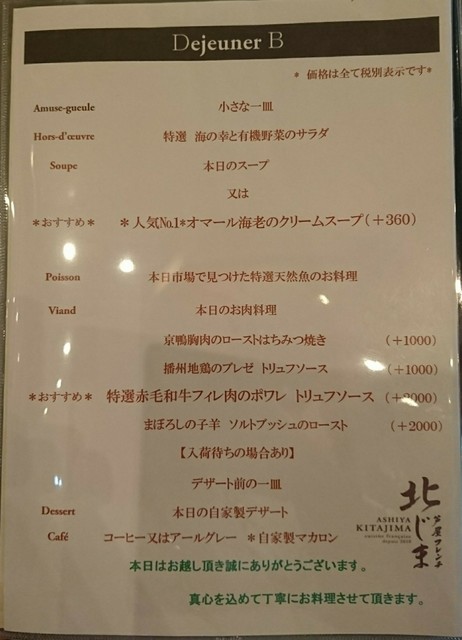 Dejeuner B
* 価格は全て税別表示です*
Amuse-gueule 小さな一皿
Hors-d'œuvre 特選 海の幸と有機野菜のサラダ
Soupe 本日のスープ
又は
*おすすめ* *人気No.1*オマール海老のクリームスープ(+360)
Poisson 本日市場で見つけた特選天然魚のお料理
Viand 本日のお肉料理
京鴨胸肉のローストはちみつ焼き (+1000)
播州地鶏のブレゼ トリュフソース (+1000)
*おすすめ* 特選赤毛和牛フィレ肉のポワレ トリュフソース (+2000)
まぼろしの子羊 ソルトブッシュのロースト (+2000)
【入荷待ちの場合あり】
デザート前の一皿
Dessert 本日の自家製デザート
Café コーヒー又はアールグレー *自家製マカロン
北じま
芦屋フレンチ
ASHIYA
KITAJIMA
本日はお越し頂き誠にありがとうございます。
真心を込めて丁寧にお料理させて頂きます。